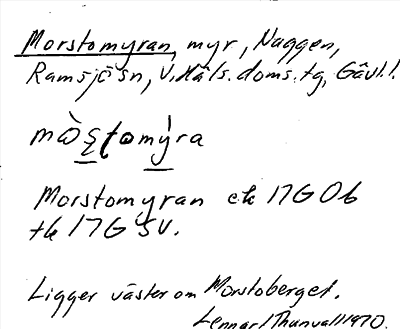 Morstomyran, myr, Naggen,
Ramsjö sn, V. Häls. doms. tg, Gävl. l.
Morstomyran ek 17G 0b
tk 17G SV.
Ligger väster om Morstoberget.
Lennart Thunvall 1970.